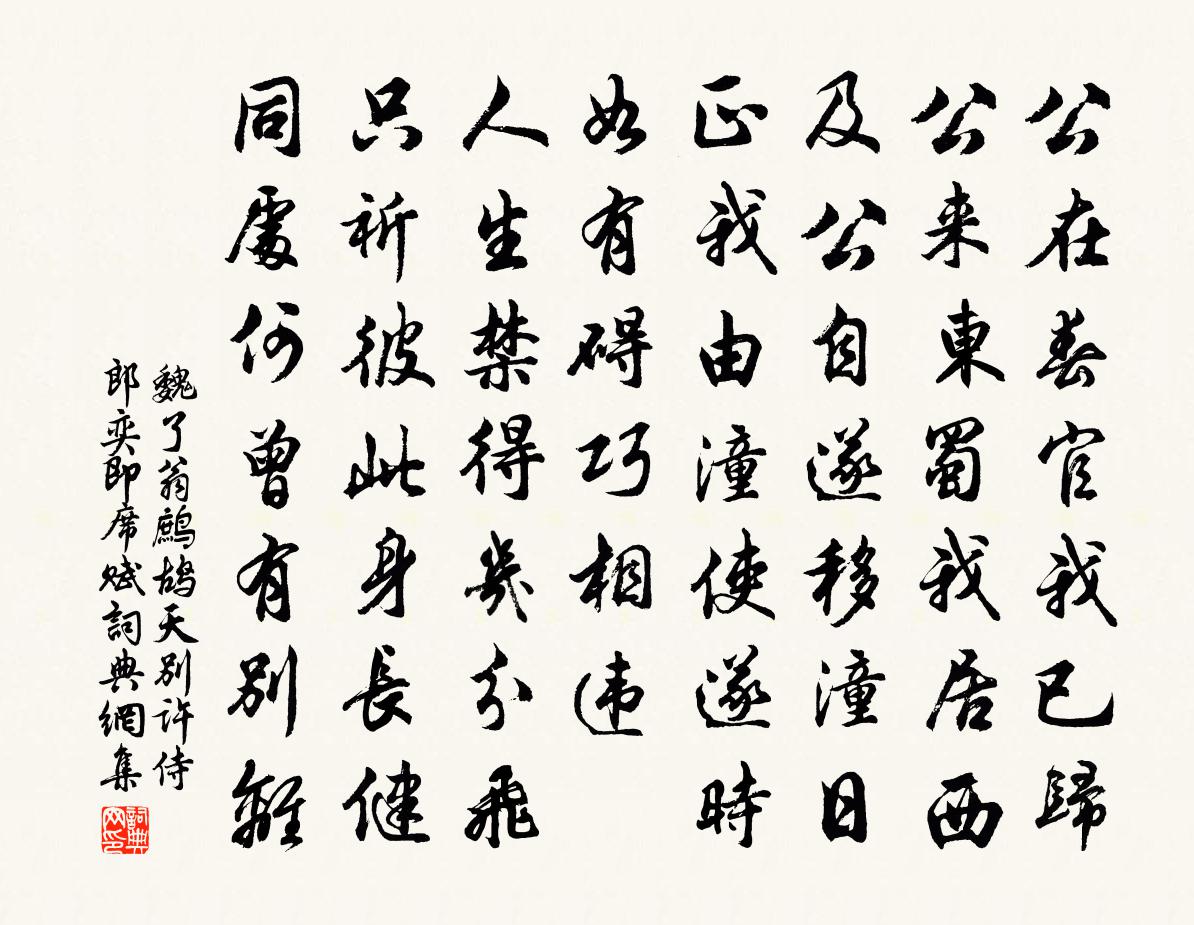 公在春官我已歸
公来東蜀我居西
及公自遂移潼日
正我由潼使遂時
如有碍巧相违
人生禁得幾分飛
只祈彼此身長健
同處何曾有別離
魏了翁鷓鴣天別許侍
郎奕即席赋詞典網集
詞典
网印